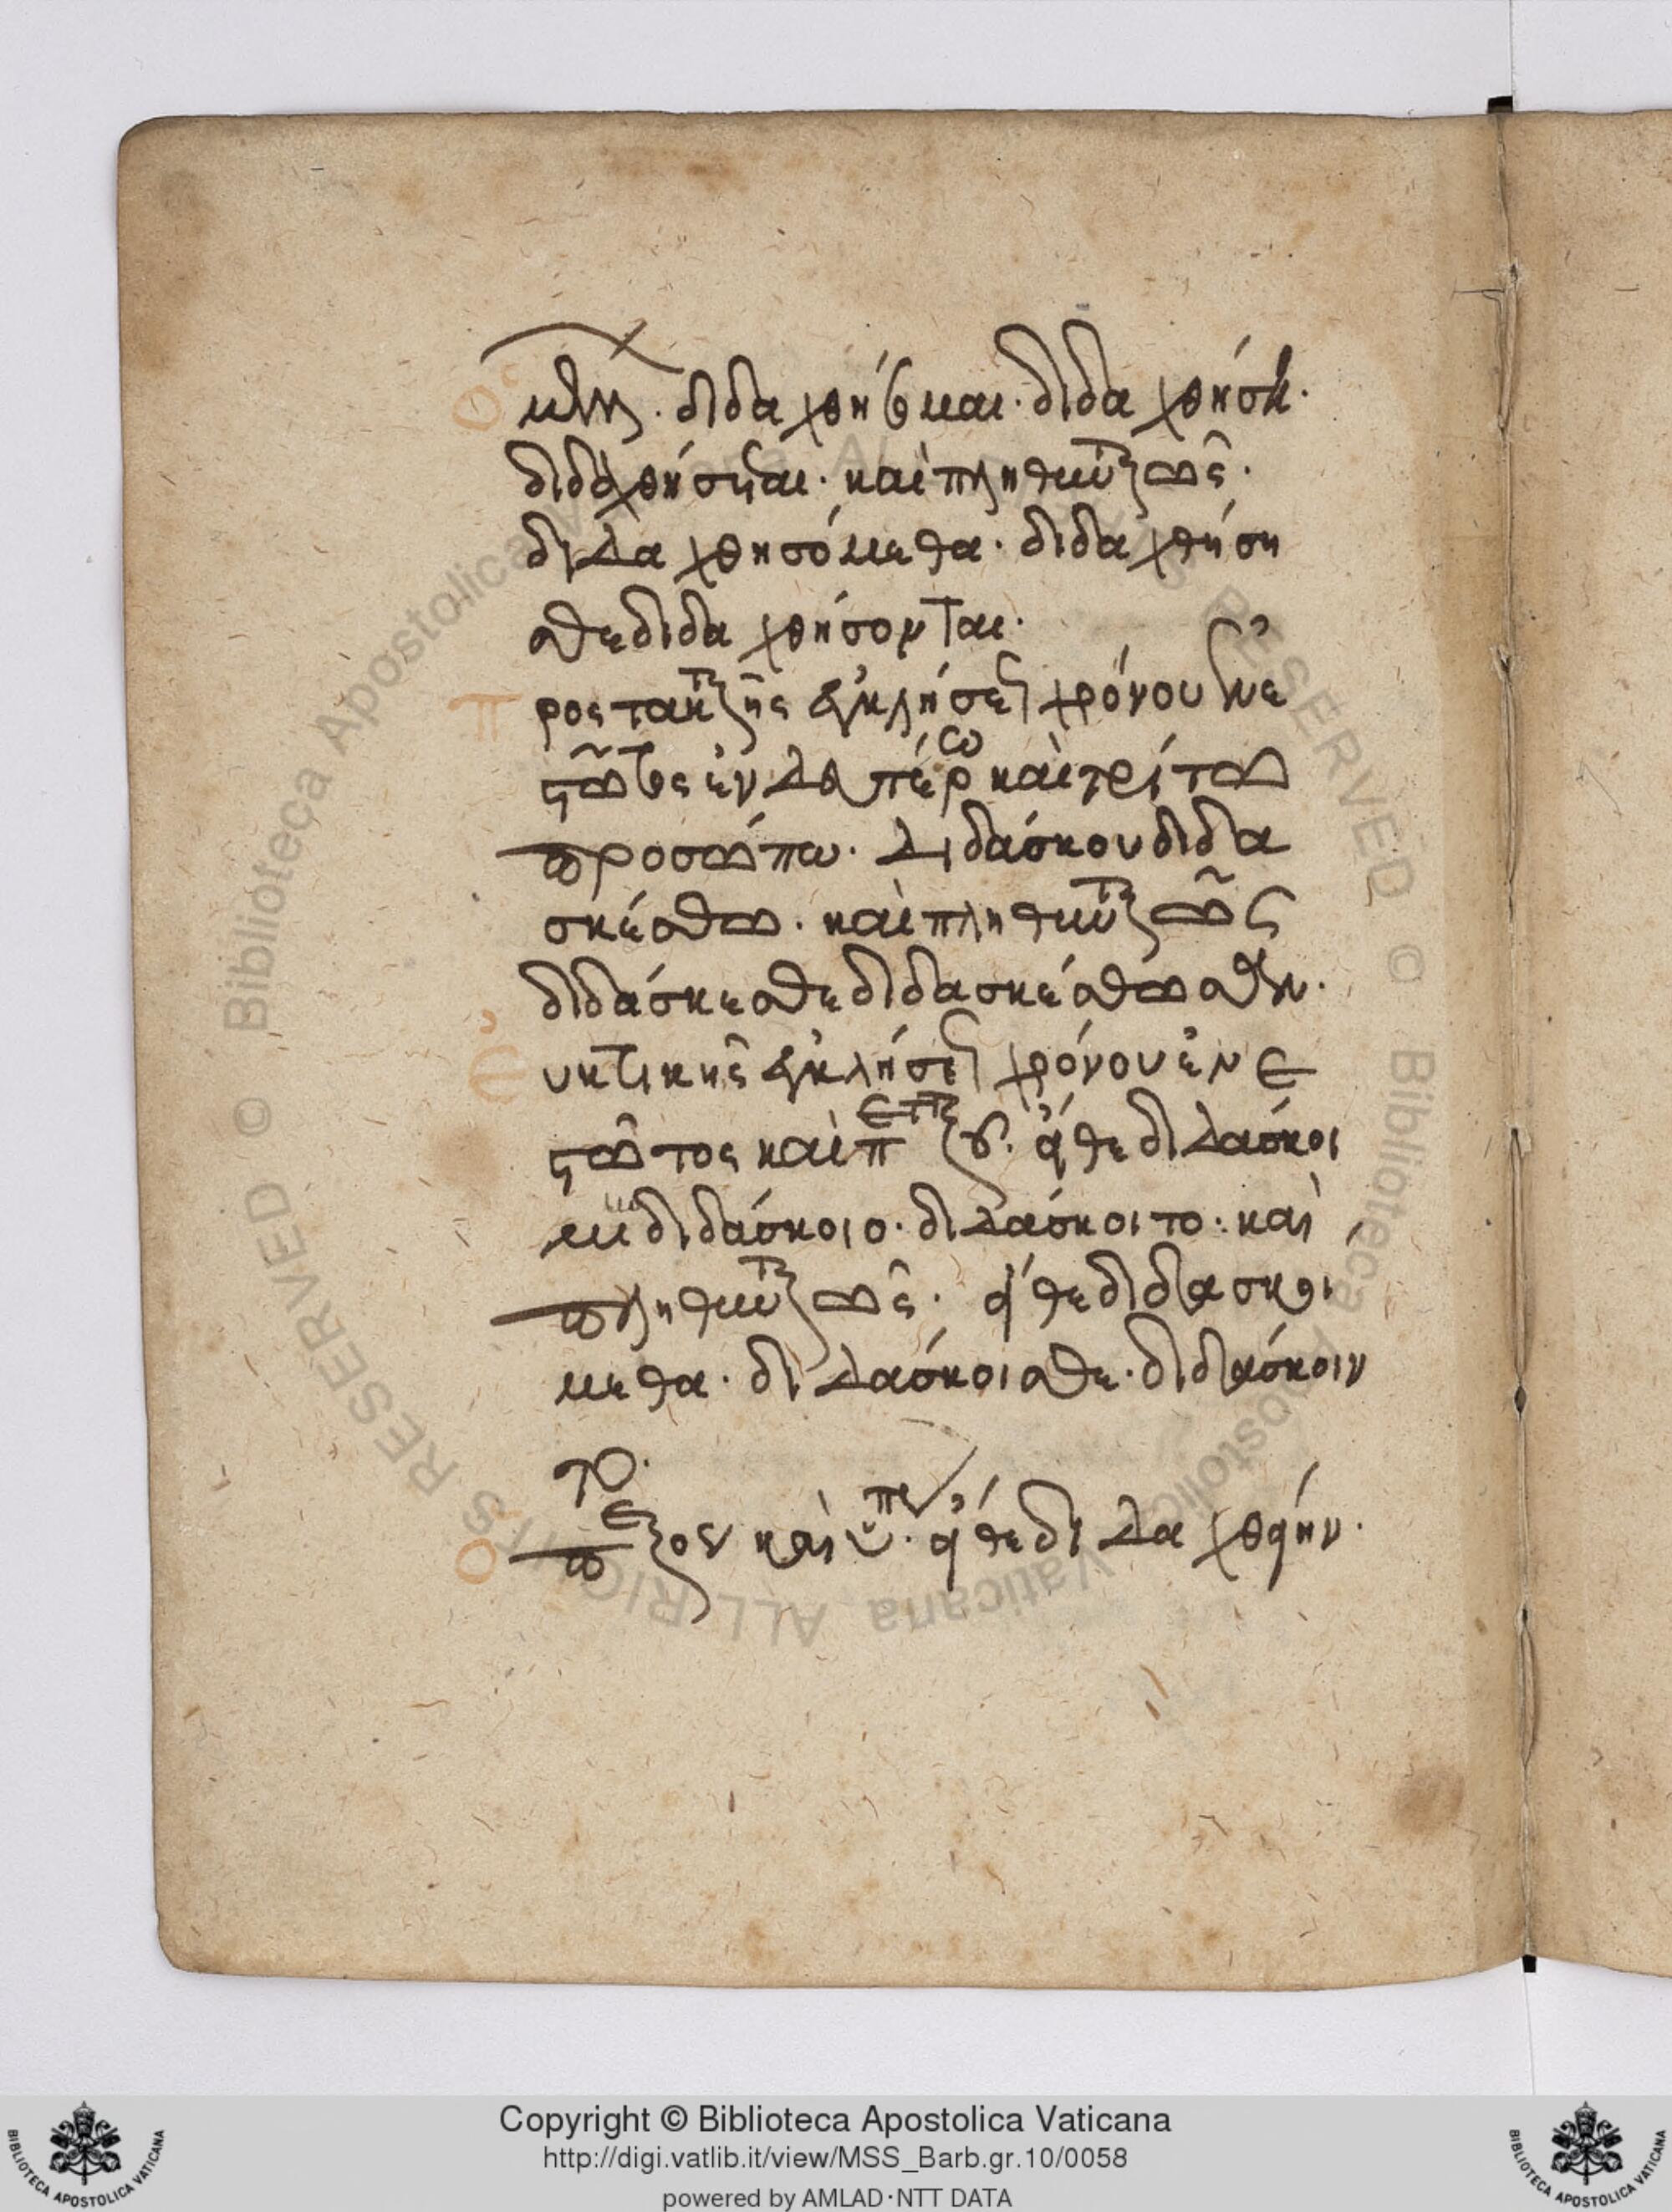 μέλλ. διδαχθήσομαι. διδαχθήση.
διδαχθήσεται. καὶ πληθυντικῶς.
διδαχθησόμεθα. διδαχθήσε
σθε διδαχθήσονται.
Προστακτικῆς ἐγκλήσεως χρόνου ἐνε
στῶτος ἐν δευτέρω καὶ τρίτω
προσώπω. διδάσκου διδα
σκέσθω. καὶ πληθυντικῶς
διδάσκεσθε διδασκέσθωσαν.
Εὐκτικῆς ἐγκλήσεως χρόνου ἐνε
στῶτος καὶ παρατατικοῦ. εἴθε διδασκοί
μην διδάσκοιο. διδάσκοιτο. καὶ
πληθυντικῶς. εἴθε διδασκοί
μεθα. διδάσκοισθε. διδάσκοιν
το.
καὶ εἴθε διδαχθείην.
Copyright © Biblioteca Apostolica Vaticana
http://digi.vatlib.it/view/MSS_Barb.gr.10/0058
powered by AMLAD·NTT DATA
BIBLIOTECA APOSTOLICA VATICANA
BIBLIOTECA APOSTOLICA VATICANA